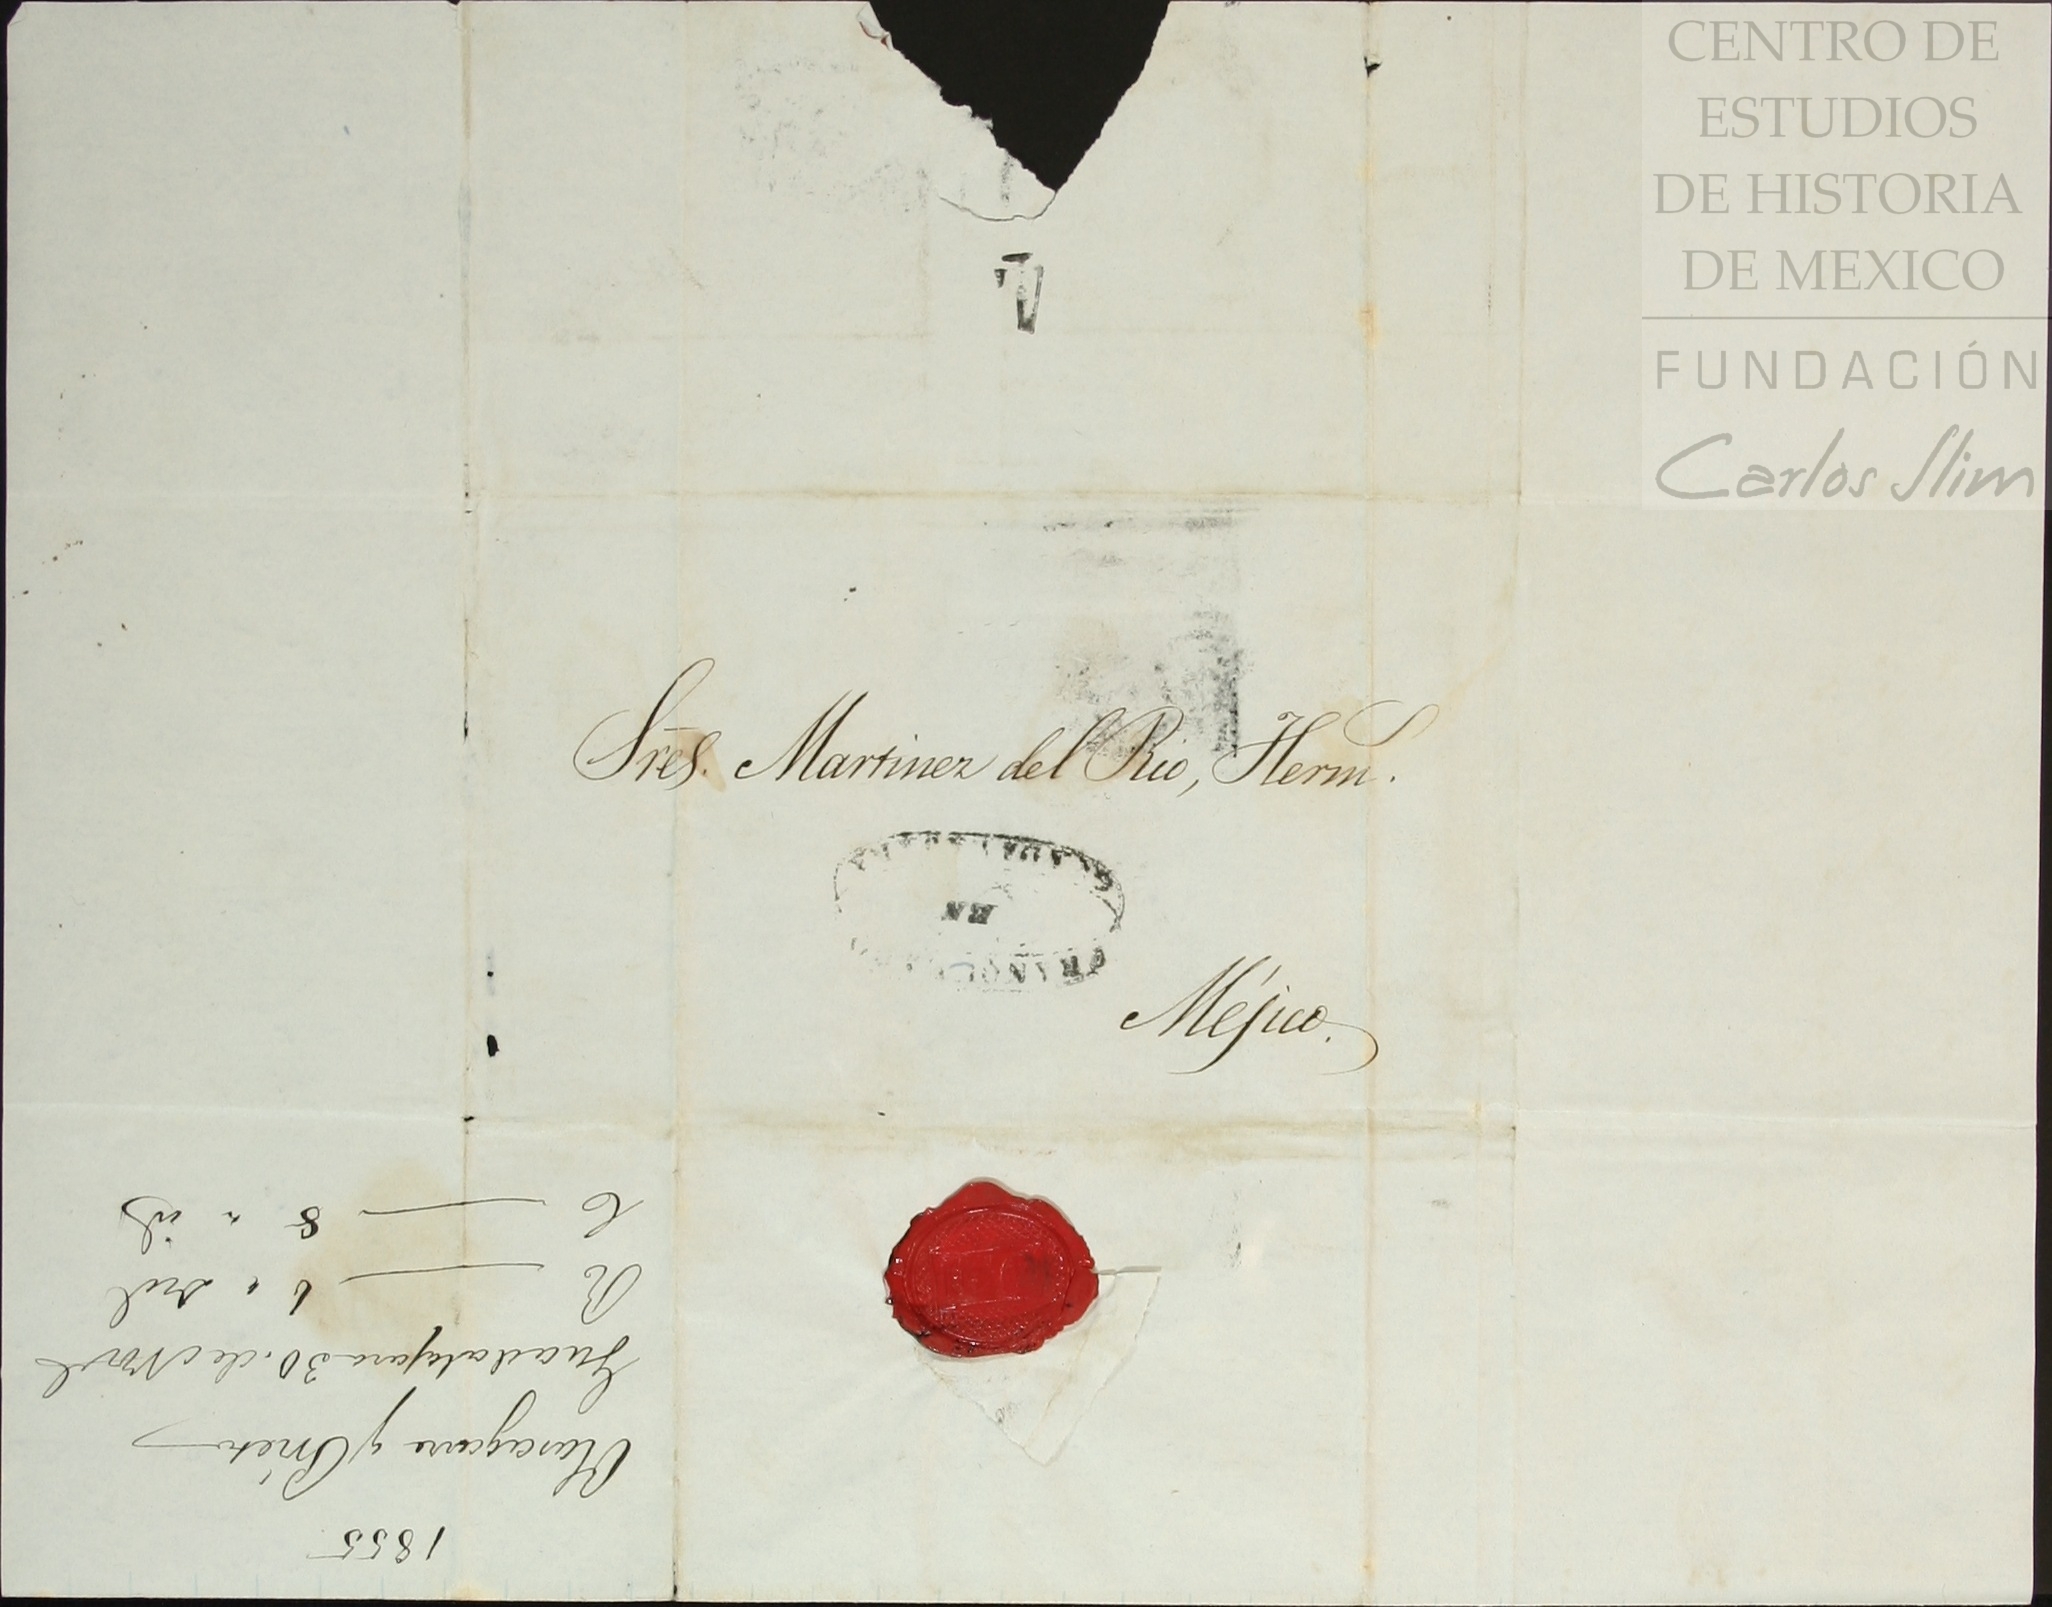 CENTRO DE
ESTUDIOS
DE HISTORIA
DE MEXICO
FUNDACIÓN
Carlos Slim
Sres. Martinez del Rio, Herms.
EN
Méjico.
1855
Olasagarre y Prieto
Guadalajara 30. de Nove
R 6 " Dre
C 8 " id